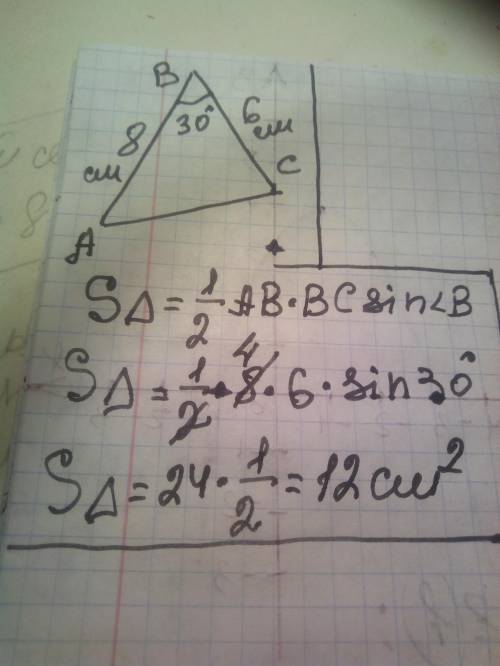 B
30°
8 см
6 см
A
C
S△ = 1/2 · AB · BC sin∠B
S△ = 1/2 · 8 4 · 6 · sin30°
S△ = 24 · 1/2 = 12 см²